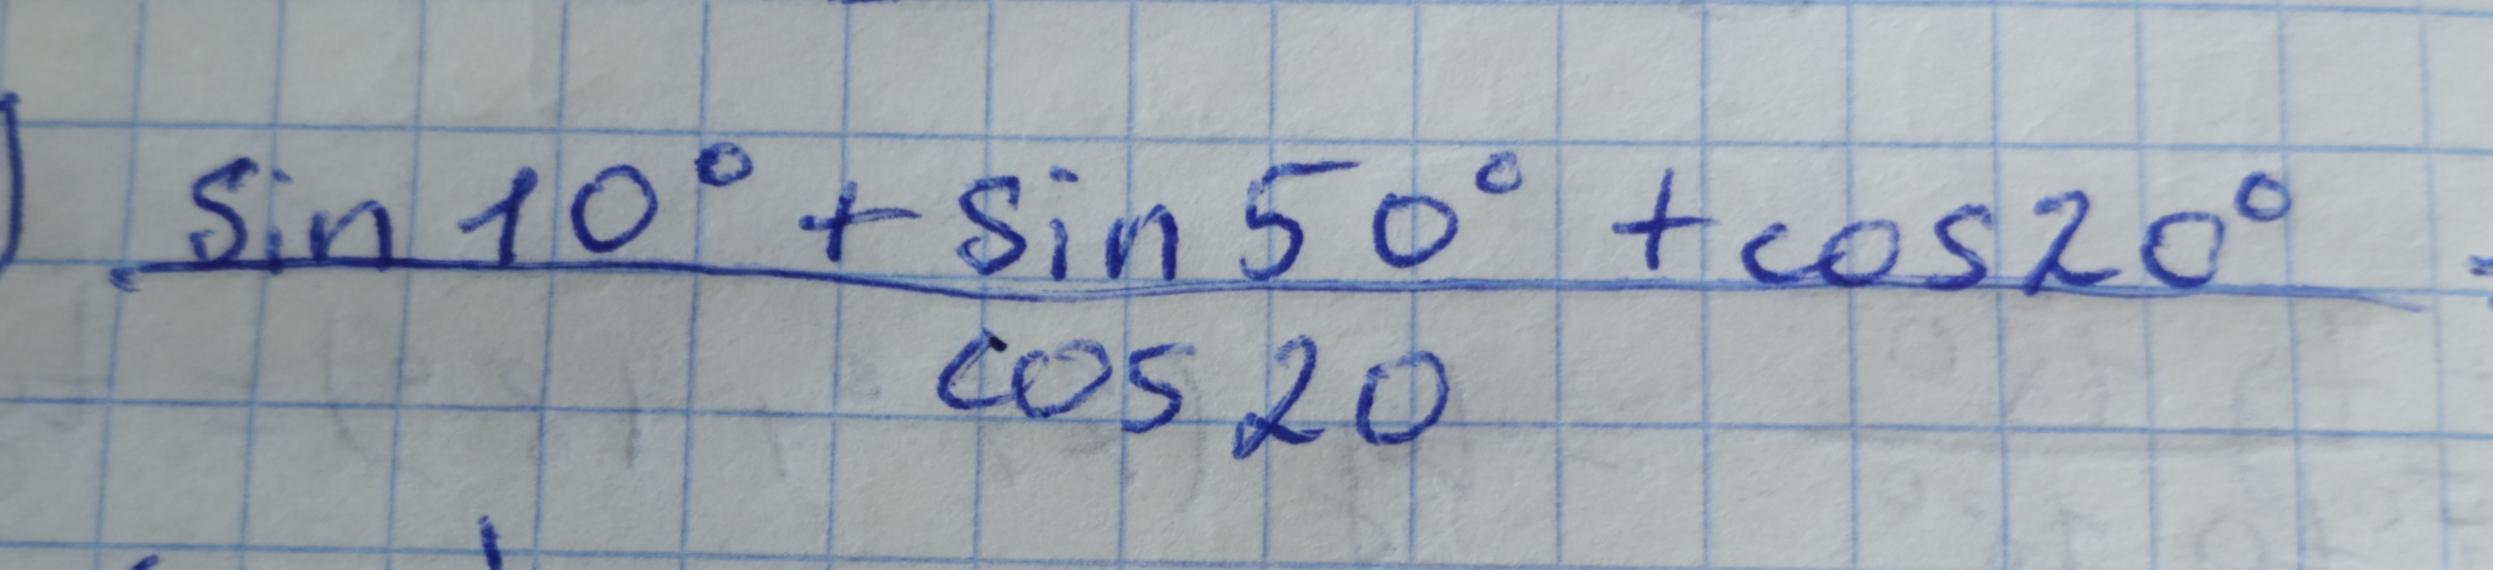 ) sin 10° + sin 50° + cos 20° =
cos 20